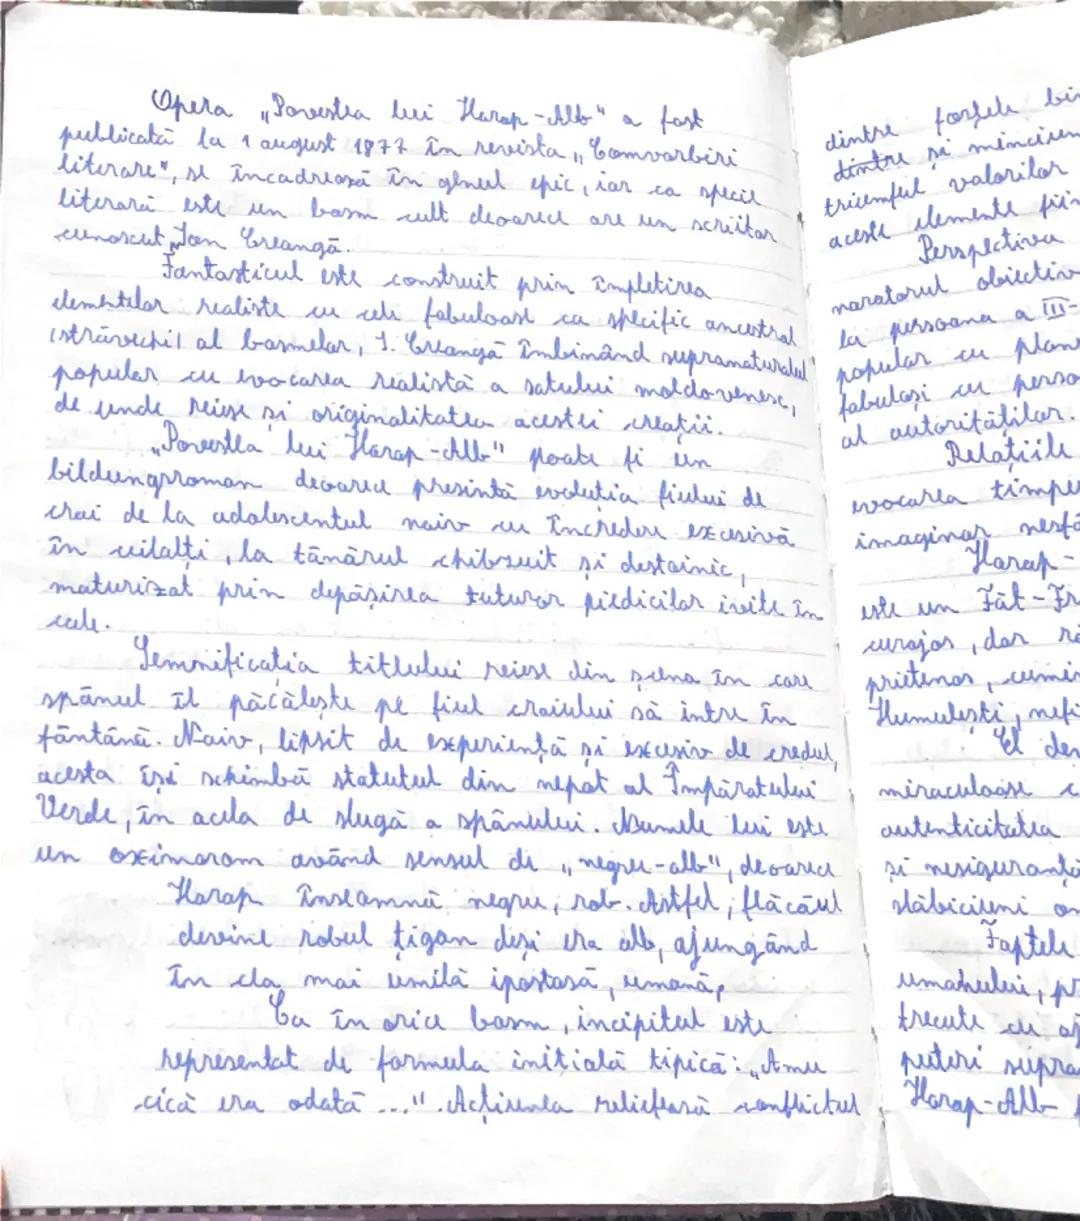 Opera „Povestea lui Harap-Alb" a fost
publicată la 1 august 1877 în revista „Convorbiri
literare", se încadrează în genul epic, iar ca specie
literară este un basm cult deoarece are un scriitor
cunoscut, Ion Creangă.
Fantasticul este construit prin împletirea
elementelor realiste cu cele fabuloase ca specific ancestral
(străvechi) al basmelor, I. Creangă îmbinând supranaturalul
popular cu evocarea realistă a satului moldovenesc,
de unde reiese și originalitatea acestei creații.
„Povestea lui Harap-Alb" poate fi un
bildungsroman deoarece prezintă evoluția fiului de
crai de la adolescentul naiv cu încredere excesivă
în ceilalți, la tânărul chibzuit și destoinic,
maturizat prin depășirea tuturor piedicilor ivite în
cale.
Semnificația titlului reiese din scena în care
spânul îl păcălește pe fiul craiului să intre în
fântână. Naiv, lipsit de experiență și excesiv de credul,
acesta își schimbă statutul din nepot al Împăratului
Verde, în acela de slugă a spânului. Numele lui este
un oximoron având sensul de „negru-alb", deoarece
Harap înseamnă negru, rob. Astfel, flăcăul
devine robul țigan deși era alb, ajungând
în cea mai umilă ipostază, umană.
Ca în orice basm, incipitul este
reprezentat de formula inițială tipică: „Amu
cică era odată ...". Acțiunea reliefează conflictul
dintre forțele
dintre și
triumful valorilor
aceste elemente
Perspectiva
naratorul obiectiv
la persoana a III-
popular cu
fabuloși cu
al autorităților.
Relațiile
evocarea
imaginar
Harap-
este un Făt-Fr
curajos, dar
prietenos,
Humulești,
El
miraculoase
autenticitatea
și nesiguranță
slăbiciuni
Faptele
umanului,
trecute cu
puteri supra
Harap-Alb